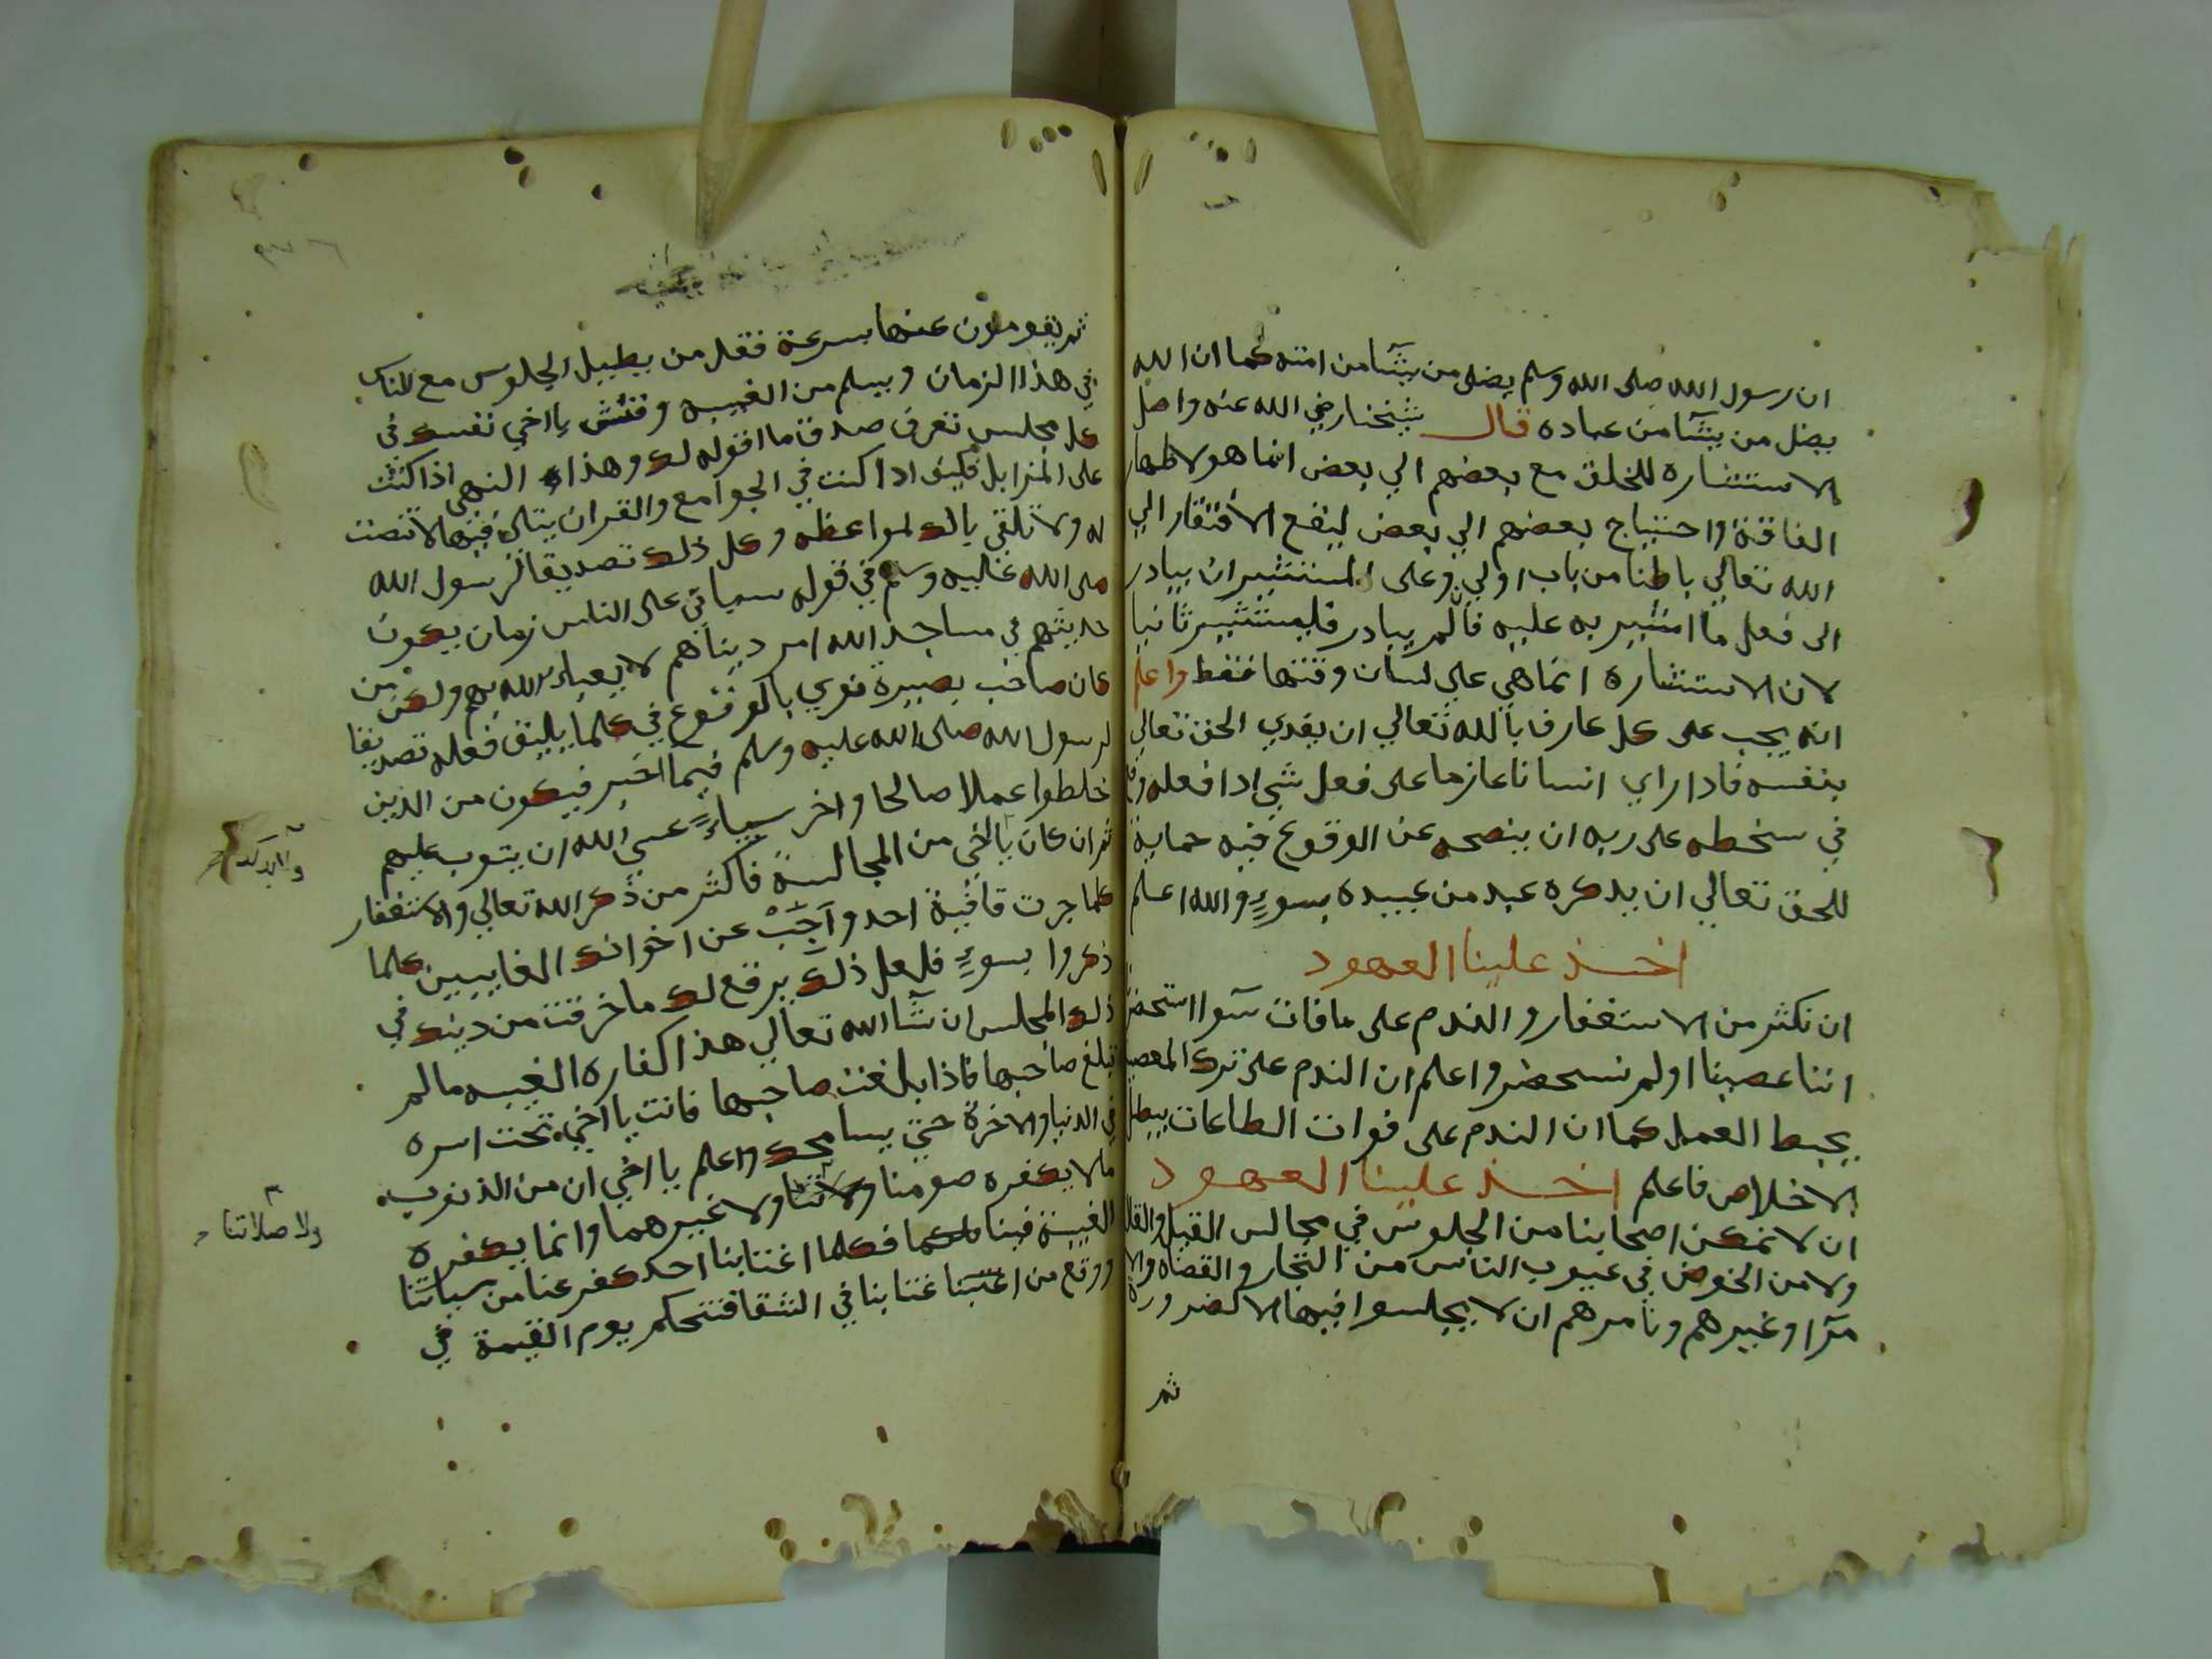 ان رسول الله صلى الله وسلم يضل من يشآ من امته كما ان الله
يضل من يشآ من عباده قال شيخنا رضي الله عنه واصل
الاستشاره للخلق مع بعضهم الي بعض انما هو لاظهار
الفاقة واحتياج بعضهم الي بعض ليقع الافتقار الي
الله تعالي باطنا من باب اولي وعلى المستشير ان يبادر
الى فعل ما اشير به عليه فالم يبادر فليستشير ثانيا
لان الاستشاره انما هي علي لسان وقتها فقط واعلم
انه يجب على كل عارف بالله تعالي ان يفدي الحق تعالي
بنفسه فاذا راي انسانا عازما على فعل شي اذا فعله وقع
في سخطه على ربه ان ينصحه عن الوقوع فيه حماية
للحق تعالي ان يذكره عبد من عبيده بسوءٍ والله اعلم
اخذ علينا العهود
ان نكثر من الاستغفار والندم على مافات سوا استحضر
اننا عصينا اولم نسحضر واعلم ان الندم على ترك المعصية
يحبط العمل كما ان الندم على فوات الطاعات يبطل
الاخلاص فاعلم اخذ علينا العهود
ان لا نمكن اصحابنا من الجلوس في مجالس القيل والقال
ولا من الخوض في عيوب الناس من التجار والقضاه والا
مرآ وغيرهم ونامرهم ان لا يجلسوا فيها الا لضرورة
ثم
ثم يقومون عنها بسرعة فقل من يطيل الجلوس مع الناس
في هذا الزمان ويسلم من الغيبه وفتش يا اخي نفسك في
كل مجلس تعرف صدق ما اقوله لك وهذا النهي اذا كنت
على المزابل فكيف اذا كنت في الجوامع والقران يتلى فيها لا تنصت
له ولا تلقي بالك لمواعظه وكل ذلك تصديقا لرسول الله
صلى الله عليه وسلم في قوله سياتي على الناس زمان يكون
حديثهم في مساجد الله امر دنياهم لا يعباء الله بهم ولكن من
كان صاحب بصيرة نوي بالوقوع في كلما يليق فعله تصديقا
لرسول الله صلى الله عليه وسلم فيما اخبر فيكون من الذين
خلطوا عملا صالحا واخر سياءً عسي الله ان يتوب عليهم
ثم ان كان يا اخي من المجالسة فاكثر من ذكر الله تعالي والاستغفار
كلما جرت قافية احد واَجِبْ عن اخوانك الغايبين كلما
ذكروا بسوءٍ فلعل ذلك يرقع لك ما خرقت من دينك في
ذلك المجلس ان شآ الله تعالي هذا كفاره الغيبه مالم
تبلغ صاحبها فاذا بلغت صاحبها فانت يا اخي تحت اسره
في الدنيا والاخرة حتي يسامحك واعلم يا اخي ان من الذنوب
ما لا يكفره صومنا ولا ولا غيرهما وانما يكفره
الغيبة فينا فكلما اغتابنا احد كفر عنا من سياتنا
ووقع من اغتبنا غتابنا في الشقا فنتحكم يوم القيمة في
ولا صلاتنا